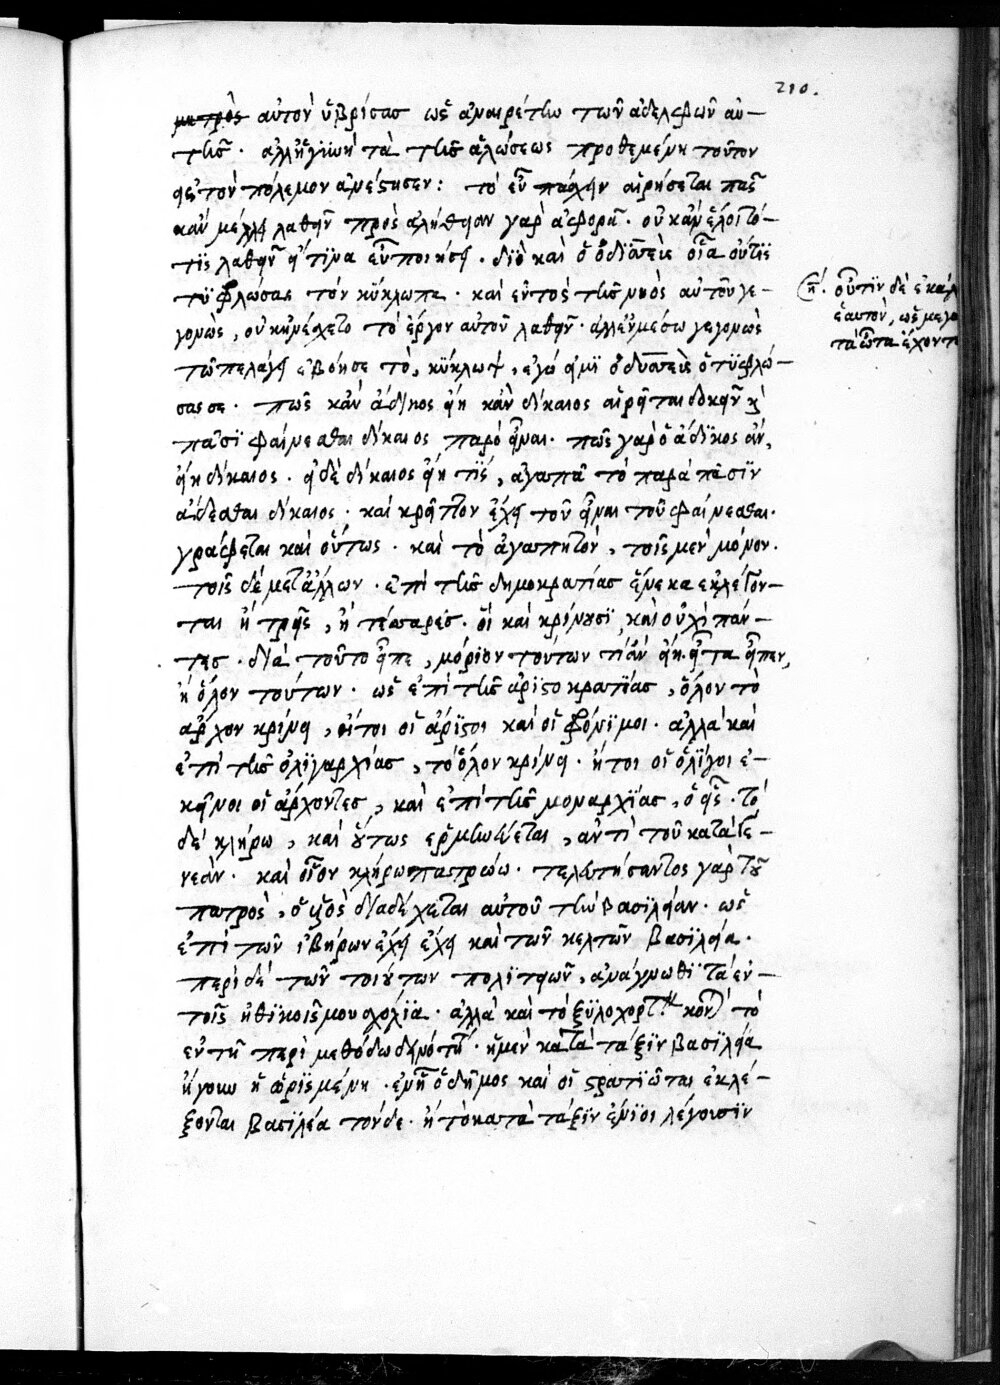 210.
μητρὸς αὐτὸν ὑβρίσας ὡς ἀναιρέτην τῶν ἀδελφῶν αὐ-
τῆς. ἀλλ' ἡ γυνὴ τὰ τῆς ἁλώσεως προθεμένη τοῦτον
εἰς τὸν πόλεμον ἀνέστησεν: τὸ εὖ πάσχειν αἱρήσεται πᾶς
κἂν μέλλει λαθεῖν πρὸς ἀλήθειαν γὰρ ἀφορᾷ. οὐκ ἂν ἕλοιτό
τις λαθεῖν εἴ τινα εὖ ποιήσει. διὸ καὶ ὁ ὀδυσσεὺς οὔτις
τυφλώσας τὸν κύκλωπα. καὶ ἐντὸς τῆς νηὸς αὐτοῦ γε-
γονὼς, οὐκ ἠνέσχετο τὸ ἔργον αὐτοῦ λαθεῖν. ἀλλ' ἐν μέσω γεγονὼς
τῶ πελάγει ἐβόησε τὸ, κύκλωψ, ἐγώ εἰμι ὀδυσσεὺς ὁ τυφλώ-
σας σε. πῶς κἂν ἄδικος εἴη κἂν δίκαιος αἱρεῖται δοκεῖν κ(αὶ)
πᾶσι φαίνεσθαι δίκαιος παρὸ εἶναι. πῶς γὰρ ὁ ἄδικος ἂν,
εἴη δίκαιος. εἰ δὲ δίκαιος εἴη τίς, ἀγαπᾶ τὸ παρὰ πᾶσιν
ᾄδεσθαι δίκαιος. καὶ κρεῖττον ἔχει τοῦ εἶναι τοῦ φαίνεσθαι.
γράφεται καὶ οὕτως. καὶ τὸ ἀγαπητὸν, τοῖς μὲν μόνον.
τοῖς δὲ μετ' ἄλλων. ἐπὶ τῆς δημοκρατίας ἕνεκα ἐκλέγον-
ται ἢ τρεῖς, ἢ τέσσαρες. οἳ καὶ κρίνουσι, καὶ οὐχὶ πάν-
τες. διὰ τοῦτο εἶπε, μόριον τούτων τὶ ἂν εἴη. εἶτα εἶπεν,
ἢ ὅλον τούτων. ὡς ἐπὶ τῆς ἀριστοκρατίας, ὅλον τὸ
ἄρχον κρίνει, ἤτοι οἱ ἄριστοι καὶ οἱ φρόνιμοι. ἀλλὰ καὶ
ἐπὶ τῆς ὀλιγαρχίας, τὸ ὅλον κρίνει. ἤτοι οἱ ὀλίγοι ἐ-
κεῖνοι οἱ ἄρχοντες, καὶ ἐπὶ τῆς μοναρχίας, ὁ εἷς. τὸ
δὲ κλήρω, καὶ οὕτως ἑρμηνεύεται, ἀντὶ τοῦ κατὰ γε-
νεάν. καὶ οἷον κλήρω πατρώω. τελευτήσαντος γὰρ τοῦ
πατρὸς, ὁ υἱὸς διαδέχεται αὐτοῦ τὴν βασιλείαν. ὡς
ἐπὶ τῶν ἰβήρων ἔχει ἔχει καὶ τῶν κελτῶν βασιλεία.
περὶ δὲ τῶν τοιούτων πολιτειῶν, ἀνάγνωθι τὰ ἐν
τοῖς ἠθικοῖς μου σχόλια. ἀλλὰ καὶ τὸ ξυλοχορτ κον τὸ
ἐν τῆ περὶ μεθόδω δεινότη. ἡ μὲν κατὰ τάξιν βασιλεία
ἤγουν ἡ ὡρισμένη. ἐν ᾗ ὁ δῆμος καὶ οἱ στρατιῶται ἐκλέ-
ξονται βασιλέα τόνδε. ἢ τὸ κατὰ τάξιν ἔνιοι λέγουσιν
οὖτιν δὲ ἐκάλ
ἑαυτὸν, ὡς μεγα
τὰ ὦτα ἔχοντ